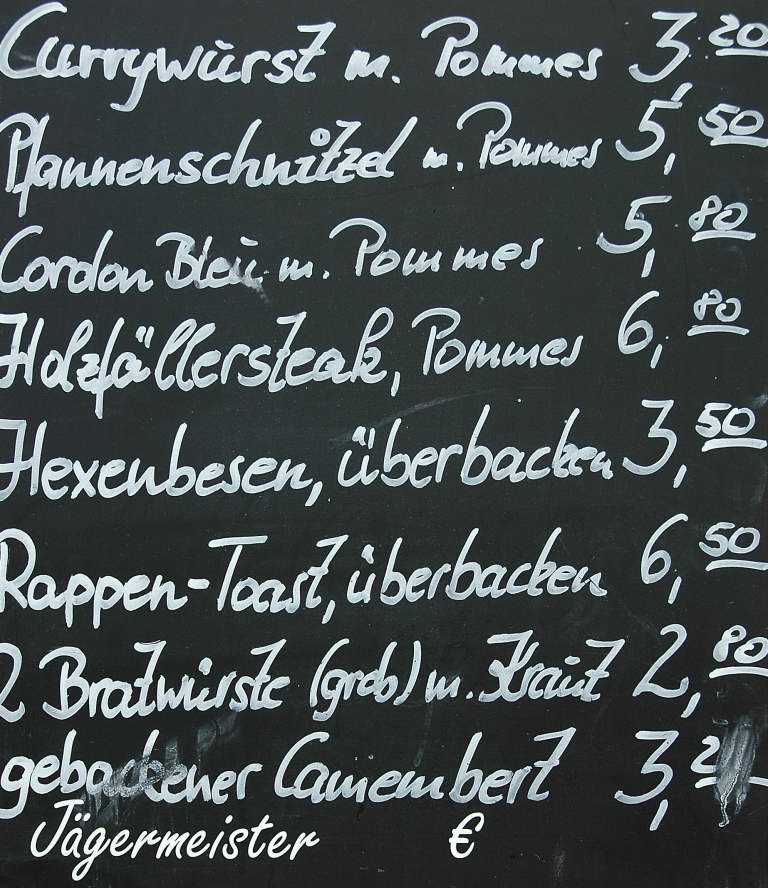 Currywurst m. Pommes 3,20
Pfannenschnitzel m. Pommes 5,50
Cordon Bleu m. Pommes 5,80
Holzfällersteak, Pommes 6,80
Hexenbesen, überbacken 3,50
Rappen-Toast, überbacken 6,50
2 Bratwürste (grob) m. Kraut 2,80
gebackener Camembert 3,2
Jägermeister €